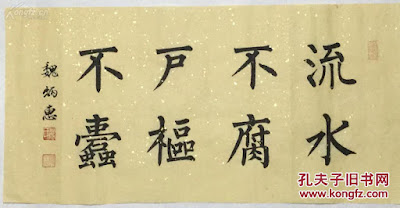 流水
不腐
戶樞
不蠹
魏炳惠
孔夫子旧书网